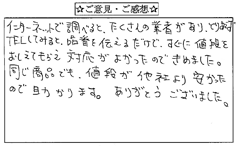 ☆ご意見・ご感想☆
インターネットで調べると、たくさんの業者があり、
TELしてみると、品番を伝えるだけで、すぐに値段を
おしえてもらえ 対応がよかったのできめました。
同じ商品でも、値段が他社より安かった
ので助かります。ありがとうございました。